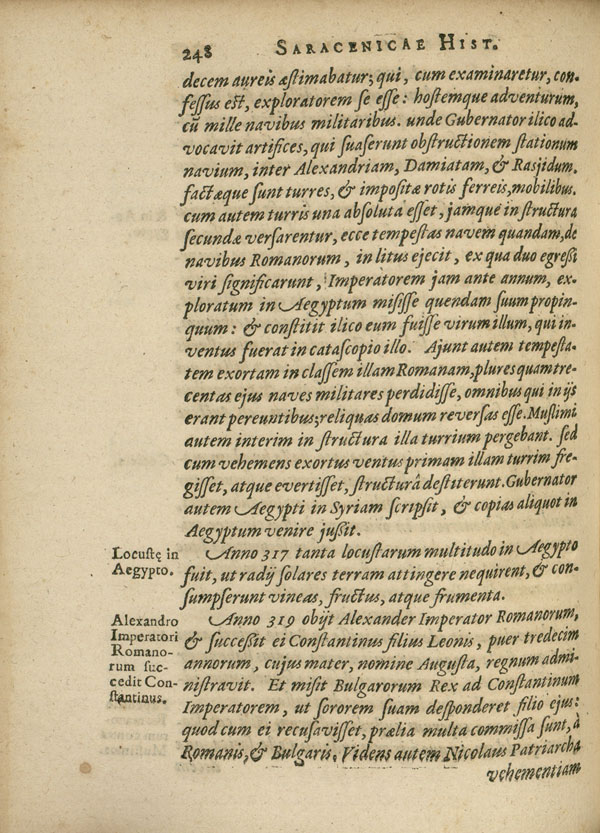 248 SARACENICAE HIST.
decem aureis æstimabatur; qui, cum examinaretur, con-
fessus est, exploratorem se esse: hostemque adventurum,
cũ mille navibus militaribus. unde Gubernator ilico ad-
vocavit artifices, qui suaserunt obstructionem stationum
navium, inter Alexandriam, Damiatam, & Rasjidum.
factæque sunt turres, & impositæ rotis ferreis, mobilibus.
cum autem turris una absoluta esset, jamque in structura
secundæ versarentur, ecce tempestas navem quandam, de
navibus Romanorum, in litus ejecit, ex qua duo egreßi
viri significarunt, Imperatorem jam ante annum, ex-
ploratum in Aegyptum misisse quendam suum propin-
quum: & constitit ilico eum fuisse virum illum, qui in-
ventus fuerat in catascopio illo. Ajunt autem tempesta-
tem exortam in classem illam Romanam, plures quam tre-
centas ejus naves militares perdidisse, omnibus qui in ijs
erant pereuntibus; reliquas domum reversas esse. Muslimi
autem interim in structura illa turrium pergebant. sed
cum vehemens exortus ventus primam illam turrim fre-
gisset, atque evertisset, structurâ destiterunt. Gubernator
autem Aegypti in Syriam scripsit, & copias aliquot in
Aegyptum venire jußit.
Locustę in
Aegypto.
Anno 317 tanta locustarum multitudo in Aegypto
fuit, ut radij solares terram attingere nequirent, & con-
sumpserunt vineas, fructus, atque frumenta.
Alexandro
Imperatori
Romano-
rum suc-
cedit Con-
stantinus.
Anno 319 obijt Alexander Imperator Romanorum,
& succeßit ei Constantinus filius Leonis, puer tredecim
annorum, cujus mater, nomine Augusta, regnum admi-
nistravit. Et misit Bulgarorum Rex ad Constantinum
Imperatorem, ut sororem suam desponderet filio ejus:
quod cum ei recusavisset, prælia multa commissa sunt, à
Romanis, & Bulgaris. Videns autem Nicolaus Patriarcha
vehementiam